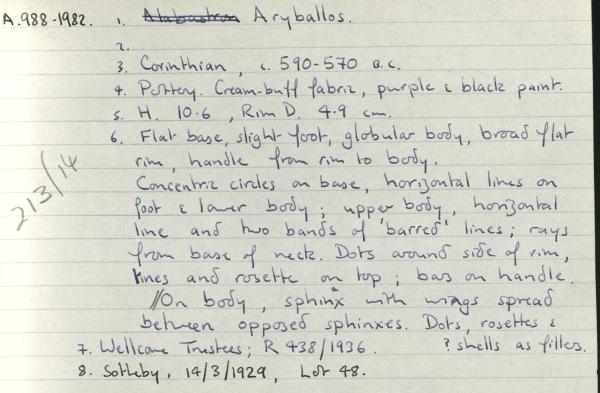 A.988-1982. 1. Alabastron Aryballos.
2.
3. Corinthian, c. 590-570 B.C.
4. Pottery. Cream-buff fabric, purple & black paint.
5. H. 10.6, Rim D. 4.9 cm.
6. Flat base, slight foot, globular body, broad flat
rim, handle from rim to body.
Concentric circles on base, horizontal lines on
foot & lower body; upper body, horizontal
line and two bands of 'barred' lines; rays
from base of neck. Dots around side of rim,
lines and rosette on top; bars on handle.
//On body, sphinx with wings spread
between opposed sphinxes. Dots, rosettes &
? shells as filler.
7. Wellcome Trustees; R 438/1936.
8. Sotheby, 14/3/1929, Lot 48.
213/14